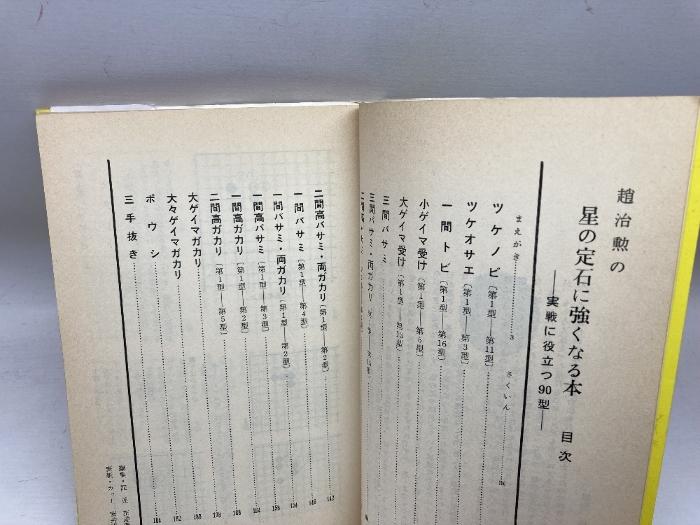 趙治勲の
星の定石に強くなる本　目次
——実戦に役立つ90型——
まえがき…………3　さくいん…………
ツケノビ〔第1型—第11型〕…………
ツケオサエ〔第1型—第3型〕…………
一間トビ〔第1型—第16型〕…………
小ゲイマ受け〔第1型—第6型〕…………
大ゲイマ受け〔第1型—第13型〕…………
三間バサミ
三間バサミ・両ガカリ
二間高バサミ・両ガカリ〔第1型—第2型〕…………
一間バサミ〔第1型—第4型〕…………
一間バサミ・両ガカリ〔第1型—第2型〕…………
一間高バサミ〔第1型—第3型〕…………
一間高ガカリ〔第1型—第2型〕…………
二間高ガカリ〔第1型—第5型〕…………
大ゲイマガカリ…………
大々ゲイマガカリ…………
ボウシ…………
三手抜き…………